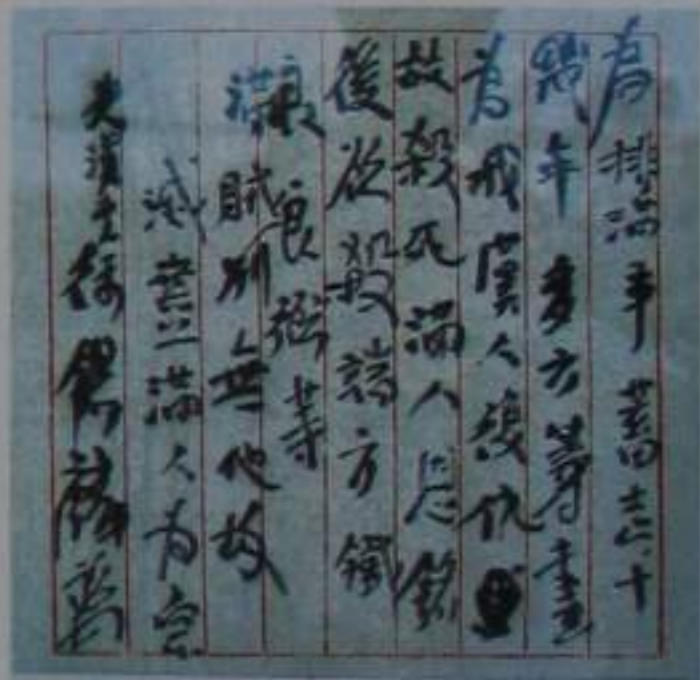 為排滿事蓄志十
幾年多方籌畫
為我漢人復仇
故殺死滿人恩銘
後欲殺端方鐵
良良弼等
滿賊別無他故
滅盡滿人為宗
光漢子徐錫麟